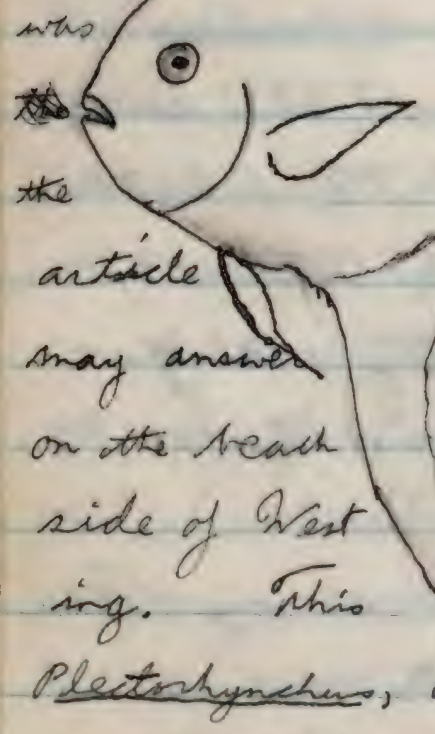 was
the
article
may answer
on the beach
side of West
ing. This
Plectorhynchus,